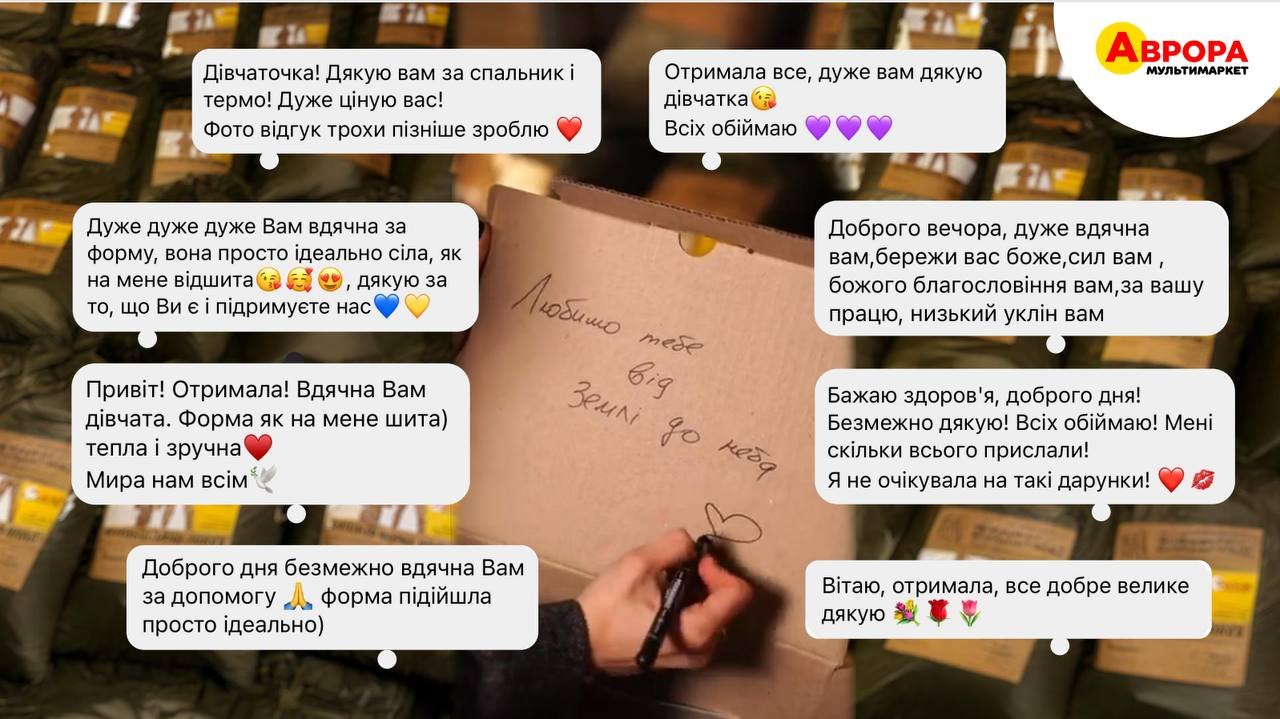 АВРОРА
МУЛЬТИМАРКЕТ
Дівчаточка! Дякую вам за спальник і
термо! Дуже ціную вас!
Фото відгук трохи пізніше зроблю ❤️
Отримала все, дуже вам дякую
дівчатка😘
Всіх обіймаю 💜💜💜
Дуже дуже дуже Вам вдячна за
форму, вона просто ідеально сіла, як
на мене відшита😘🥰😍, дякую за
то, що Ви є і підримуєте нас💙💛
Доброго вечора, дуже вдячна
вам,бережи вас боже,сил вам ,
божого благословіння вам,за вашу
працю, низький уклін вам
Привіт! Отримала! Вдячна Вам
дівчата. Форма як на мене шита)
тепла і зручна♥️
Мира нам всім🕊️
Бажаю здоров'я, доброго дня!
Безмежно дякую! Всіх обіймаю! Мені
скільки всього прислали!
Я не очікувала на такі дарунки! ❤️ 💋
Доброго дня безмежно вдячна Вам
за допомогу 🙏 форма підійшла
просто ідеально)
Вітаю, отримала, все добре велике
дякую 💐 🌹 🌷
Любимо тебе
від
Землі до неба